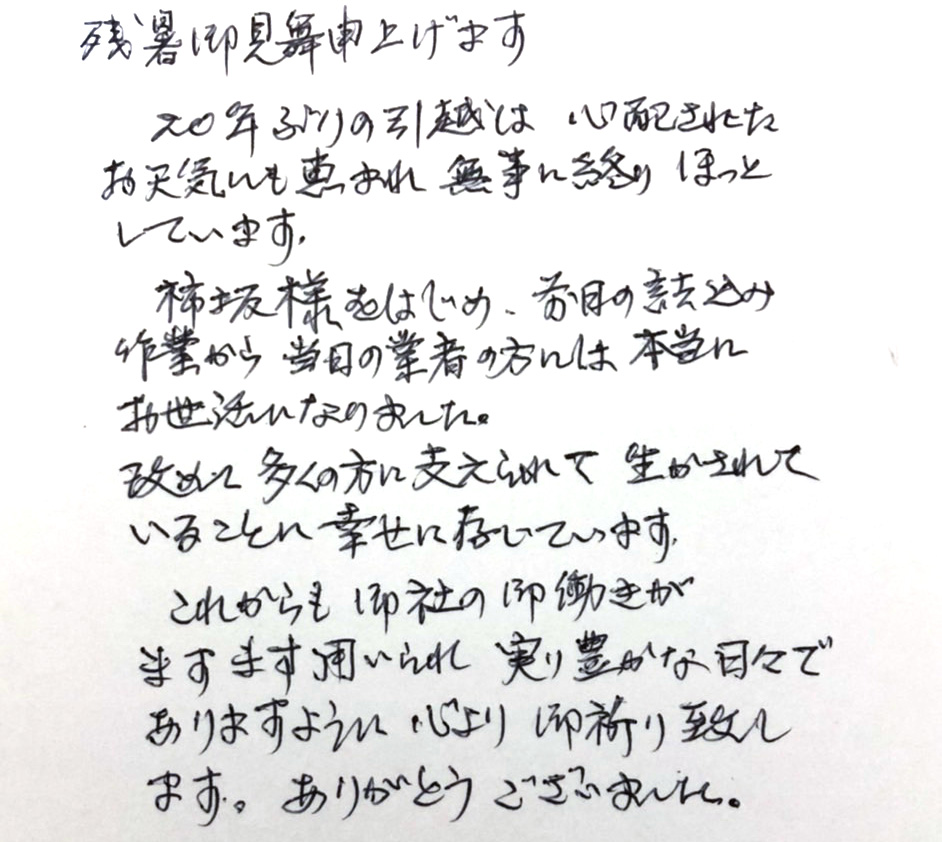 残暑御見舞申上げます
20年ぶりの引越は 心配された
お天気にも恵まれ 無事に終り ほっと
しています。
柿坂様をはじめ、前日の詰込み
作業から 当日の業者の方には 本当に
お世話になりました。
改めて 多くの方に支えられて 生かされて
いることに 幸せに存じています。
これからも 御社の御働きが
ますます用いられ 実り豊かな日々で
ありますように 心より 御祈り致し
ます。ありがとうございました。